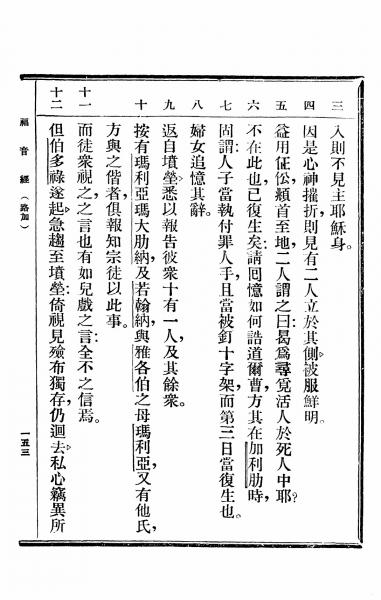 三 入則不見主耶穌身。
四 因是心神摧折則見有二人立於其側被服鮮明。
五 益用怔忪顙首至地二人謂之曰曷爲尋覓活人於死人中耶?
六 不在此也已復生矣請回憶如何誥道爾曹方其在加利肋時,
七 固謂人子當執付罪人手,且當被釘十字架,而第三日當復生也。
八 婦女追憶其辭。
九 返自墳塋悉以報告彼衆十有一人,及其餘衆。
十 按有瑪利亞瑪大肋納,及若翰納,與雅各伯之母瑪利亞,又有他氏,
方與之偕者,俱報知宗徒以此事。
十一 而徒衆視之,之言也有如兒戲之言:全不之信焉。
十二 但伯多祿遂起急趨至墳塋:倚視見殮布獨存仍迴去私心竊異所
福音經(路加)
一五三